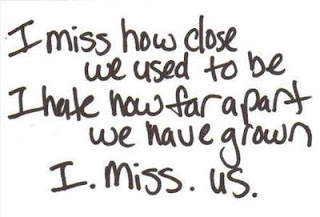 I miss how close
we used to be
I hate how far apart
we have grown
I. miss. us.